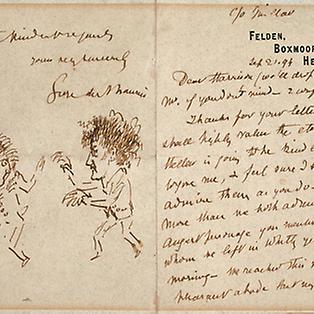 Kindest regards
yours very sincerely
George du Maurier
FELDEN,
BOXMOOR
HE
Sept 21. 94
Dear Harrison (we'll drop
Mr. if you don't mind
Thanks for your letter
shall highly value the
is going to be kind
I feel sure I
admire them as you do
more than we both
august personage you
whom we left in Whitby
morning - we reached this
pleasant abode last